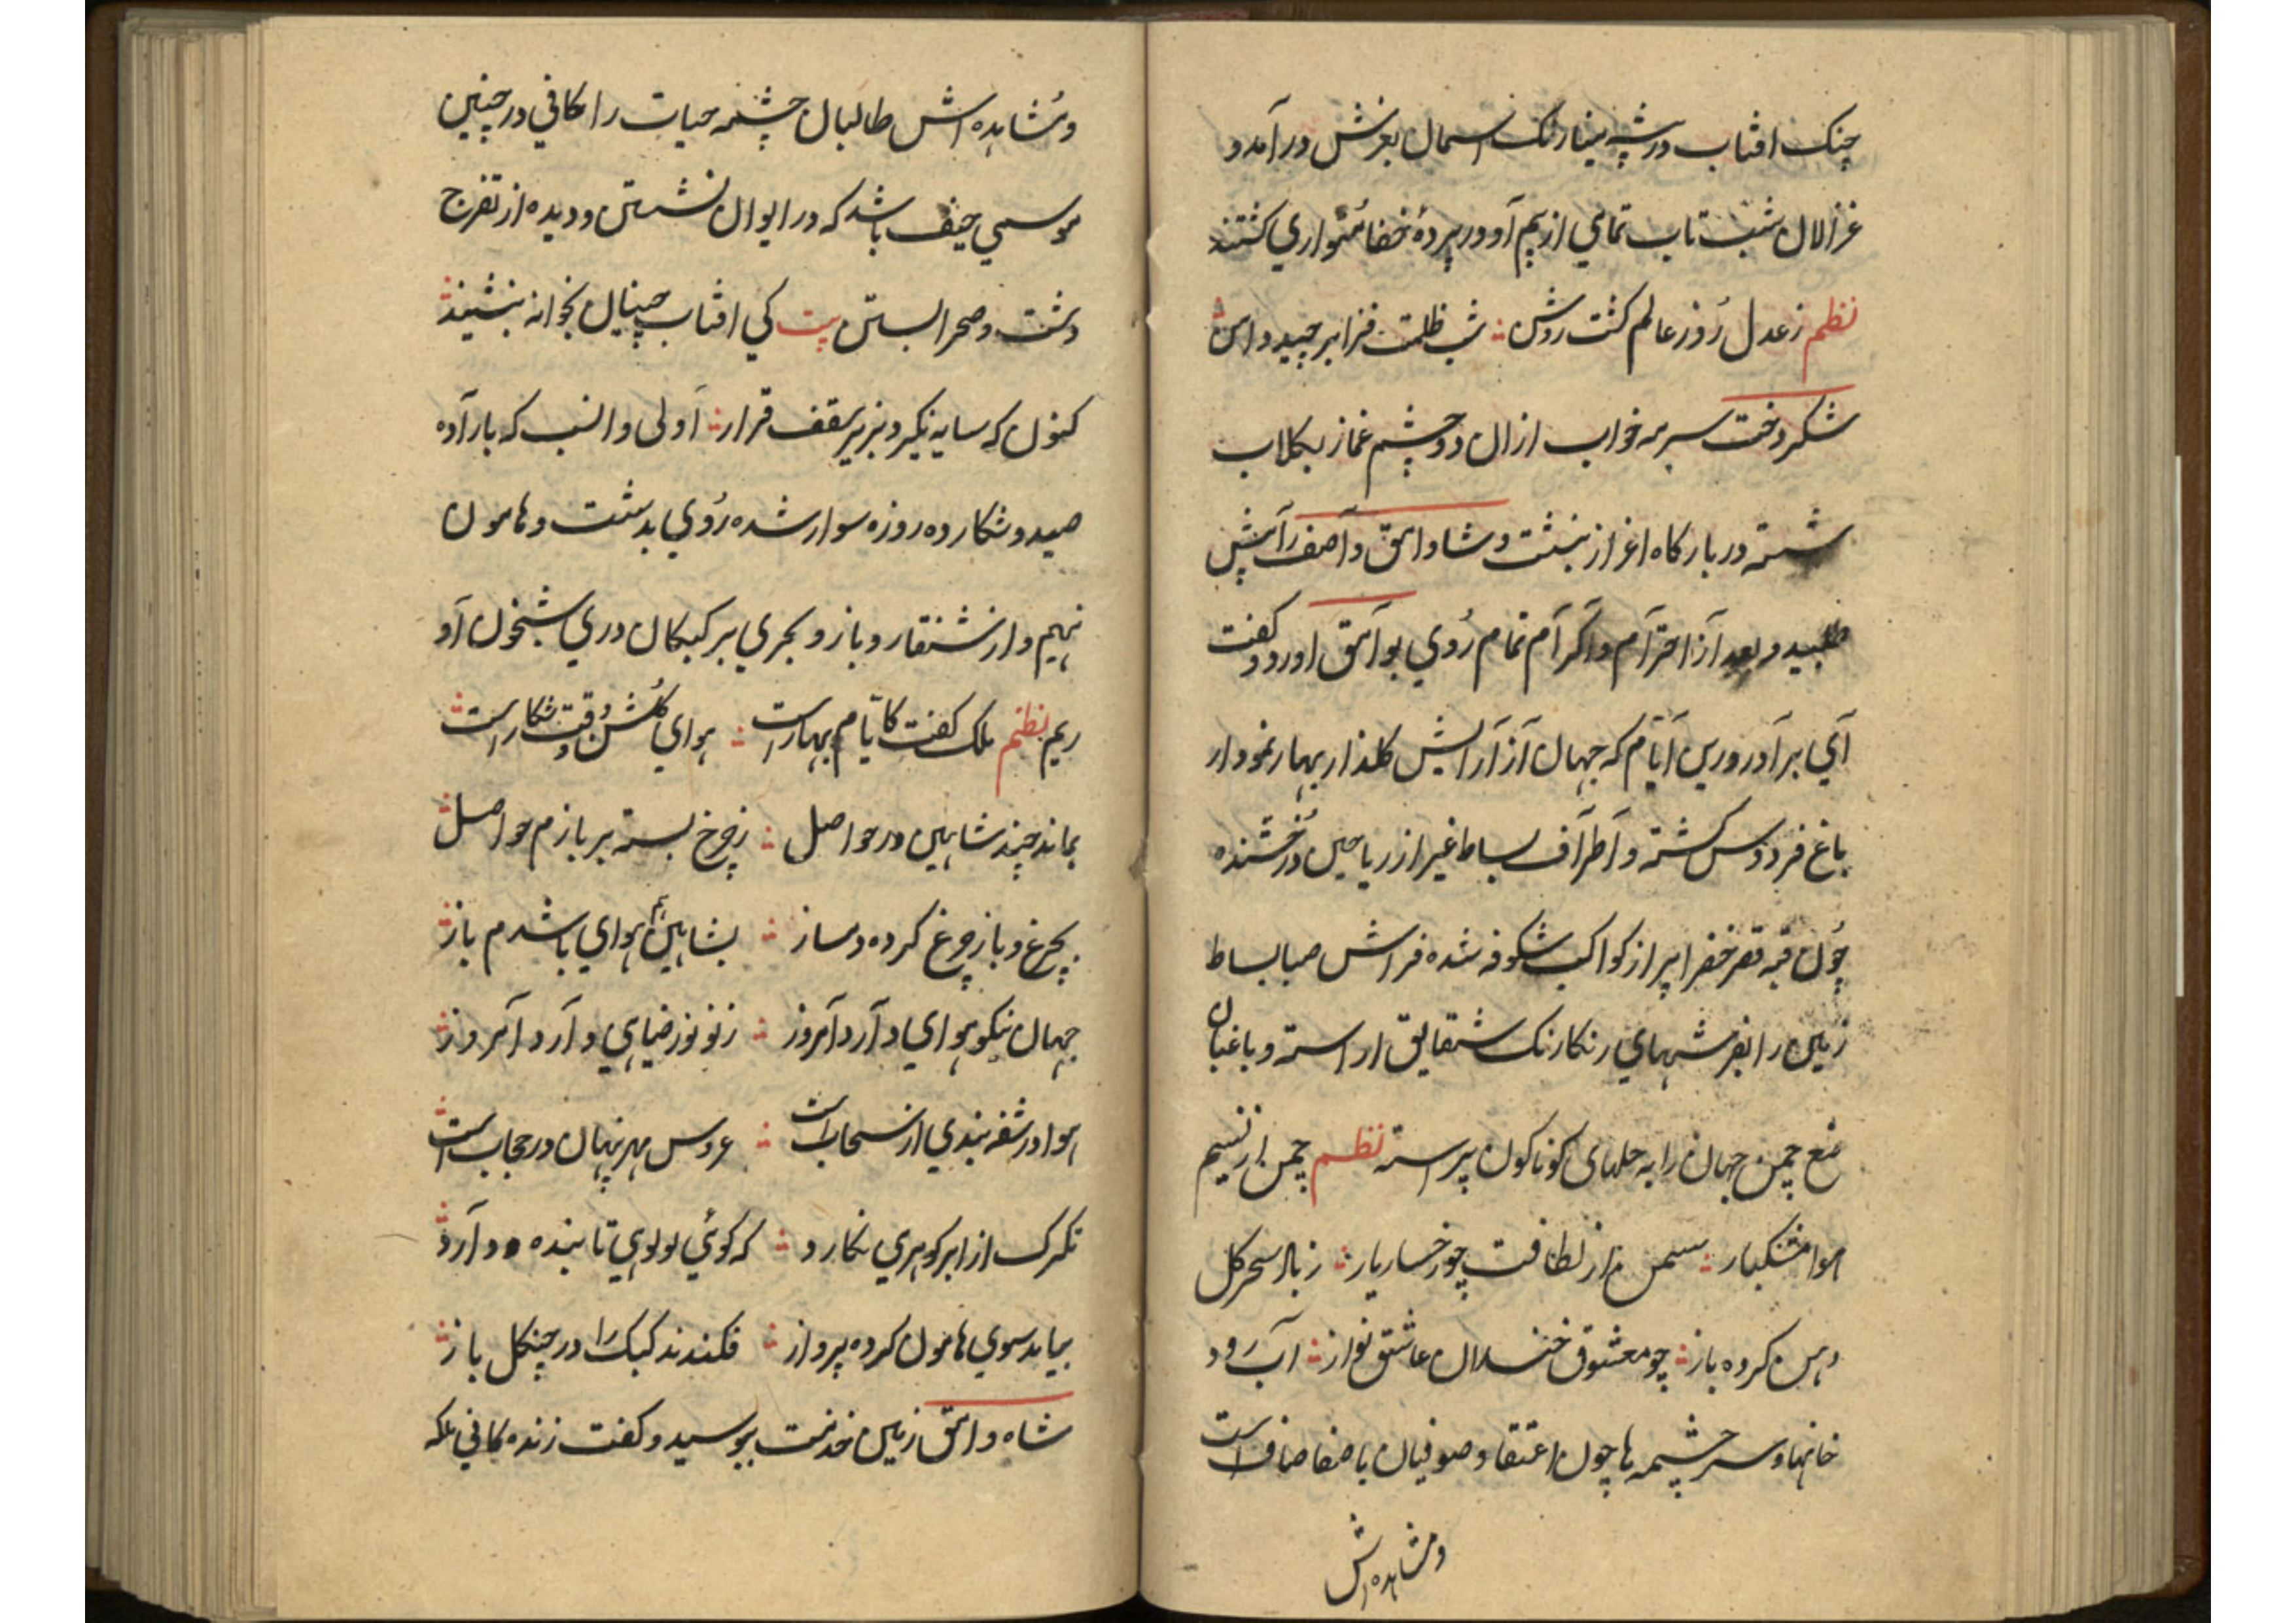 چنک افتاب در بیشه مینا رنک اسمان بغرش در آمد و
غزالان شب تاب تمامی از بیم آو در پردهٔ خفا متواری کشتند
نظم ز عدل رُوز عالم کشت روشن ؞ شب ظلمت فزا برچید دامن ؞
شکر دخت سرمه خواب از ان دو چشم غماز بکلاب
شسته در بارکاه اغراز بنشت و شاه وامق و آصف رآ پیش
طلبید و بعد آز احترآم و اکرآم تمام رُوی بوآمق اورد و کفت
آی برآدر درین آیآم که جهان آز آرایش کلذار بهار نمودار
باغ فردوس کشته و آطرآف بساط غبرا از ریاحین دُرخشنده
چُون قبه قصر خضرا پر از کواکب شکوفه شده فراش صبا بساط
زمین را بفرشهای رنکارنک شقایق اراسته و باغبان
صنع چمن جهان را به حلهای کوناکون پیراسته نظم چمن از نسیم
هوا مشکبار ؞ سمن از لطافت چو رخسار یار ؞ ز باد سحر کل
دهن کرده باز ؞ چو معشوق خندان عاشق نواز ؞ آب رود
خانها و سر چشمه ها چون اعتقاد صوفیان باصفا صاف است
و مشاهده اش
و مُشاهده اش طالبان چشمه حیات را مکافی در چنین
موسمی حیف باشد که در ایوان نشستن و دیده از تفرج
دشت و صحرا بستن بیت کی افتاب چنان بخوانه بنشیند ؞
کنون که سایه نکیرد بزیر سقف قرار ؞ آولی و انسب که بارآده
صید و شکار ده روزه سوار شده رُوی بدشت و هامون
نهیم و از شنقار و باز و بحری بر کبکان دری شبخون آو
ریم نظم ملک کفت کایّام بهار است ؞ هوای کُلشن و وقت شکار است ؞
بماند چند شاهین در حواصل ؞ ز چرخ بسته بر بازم حواصل ؞
بچرغ و باز چرغ کرده دمساز ؞ بشاهین هم هوای باشدم باز ؞
جهان نیکو هوای دآرد آمروز ؞ ز نو نوز ضیاهی دآرد آمروز ؞
هوا در شقه بندی از سحاب است ؞ عروس مهر پنهان در حجاب است ؞
تکرک از ابر کوهری نکارد ؞ که کوئی لولوی تابنده دآرد ؞
بباید سوی هامون کرده پرواز ؞ فکندند کبک را در چنکل باز ؞
شاه وامق زمین خدمت بوسید و کفت زنده کانی ملکه